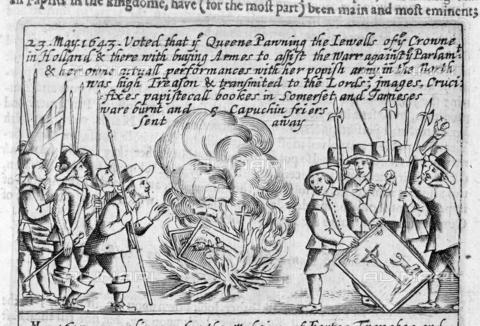 an Papists in the kingdome, have (for the most part) been main and most eminent
23. May. 1643. Voted that yͤ Queene Pawning the Iewells of yͤ Crowne
in Holland & there with buying Armes to assist the Warr against yͤ Parlamͭ
& her owne actuall performances with her popish army in the north
was high Treason & transmited to the Lords; images, Cruci:
fixes papisticall bookes in Somerset and Iameses
ware burnt and 5 Capuchin friers
sent away